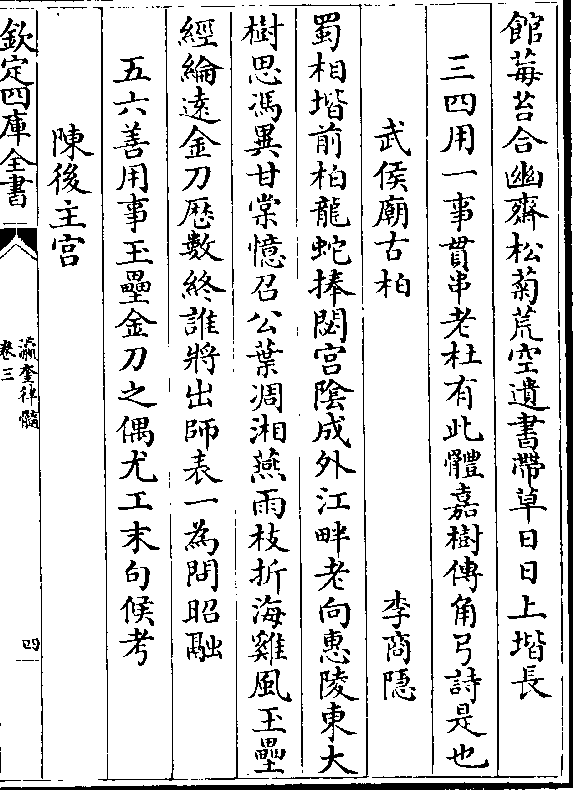 館莓苔合幽齋松菊荒空遺書帶草日日上堦長
三四用一事貫串老杜有此體嘉樹傳角弓詩是也
武侯廟古柏　李商隠
蜀相堦前柏龍蛇捧閟宮陰成外江畔老向惠陵東大
樹思馮異甘棠憶召公葉凋湘燕雨枝折海雞風玉壘
經綸遠金刀歷數終誰將出師表一為問昭融
五六善用事玉壘金刀之偶尤工末句候考
陳後主宮
欽定四庫全書
瀛奎律髓
卷三
四